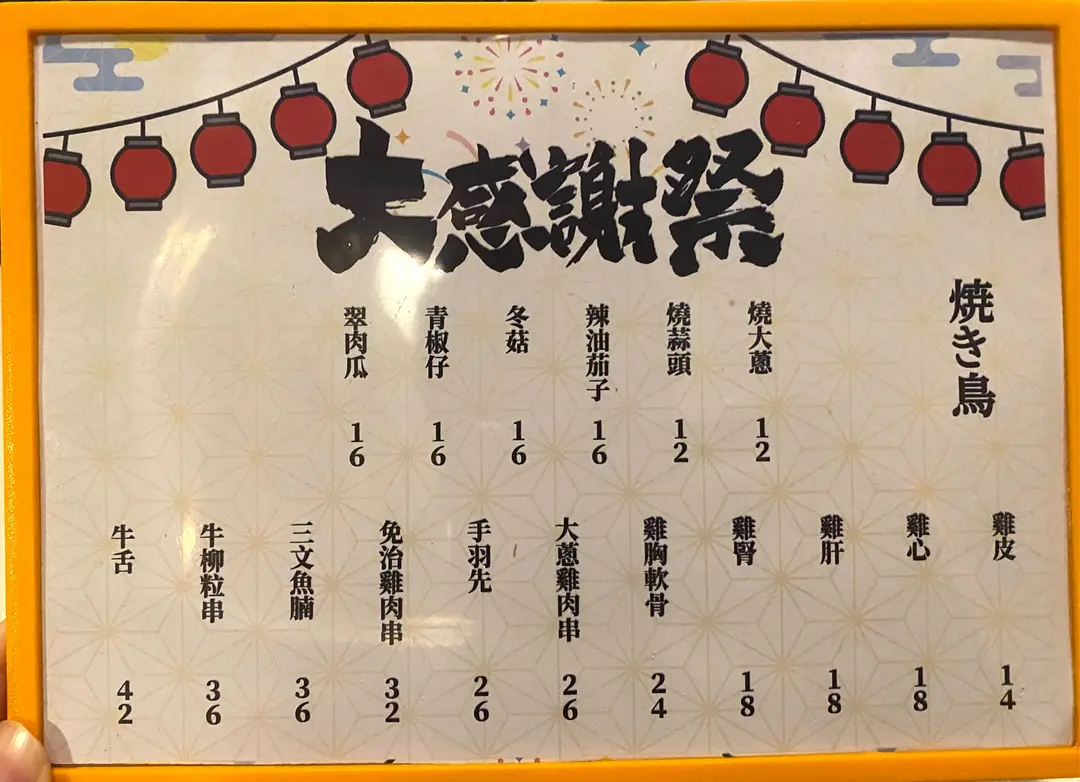 大感謝祭
焼き鳥
燒大蔥 12
燒蒜頭 12
辣油茄子 16
冬菇 16
青椒仔 16
翠肉瓜 16
雞皮 14
雞心 18
雞肝 18
雞腎 18
雞胸軟骨 24
大蔥雞肉串 26
手羽先 26
免治雞肉串 32
三文魚腩 36
牛柳粒串 36
牛舌 42